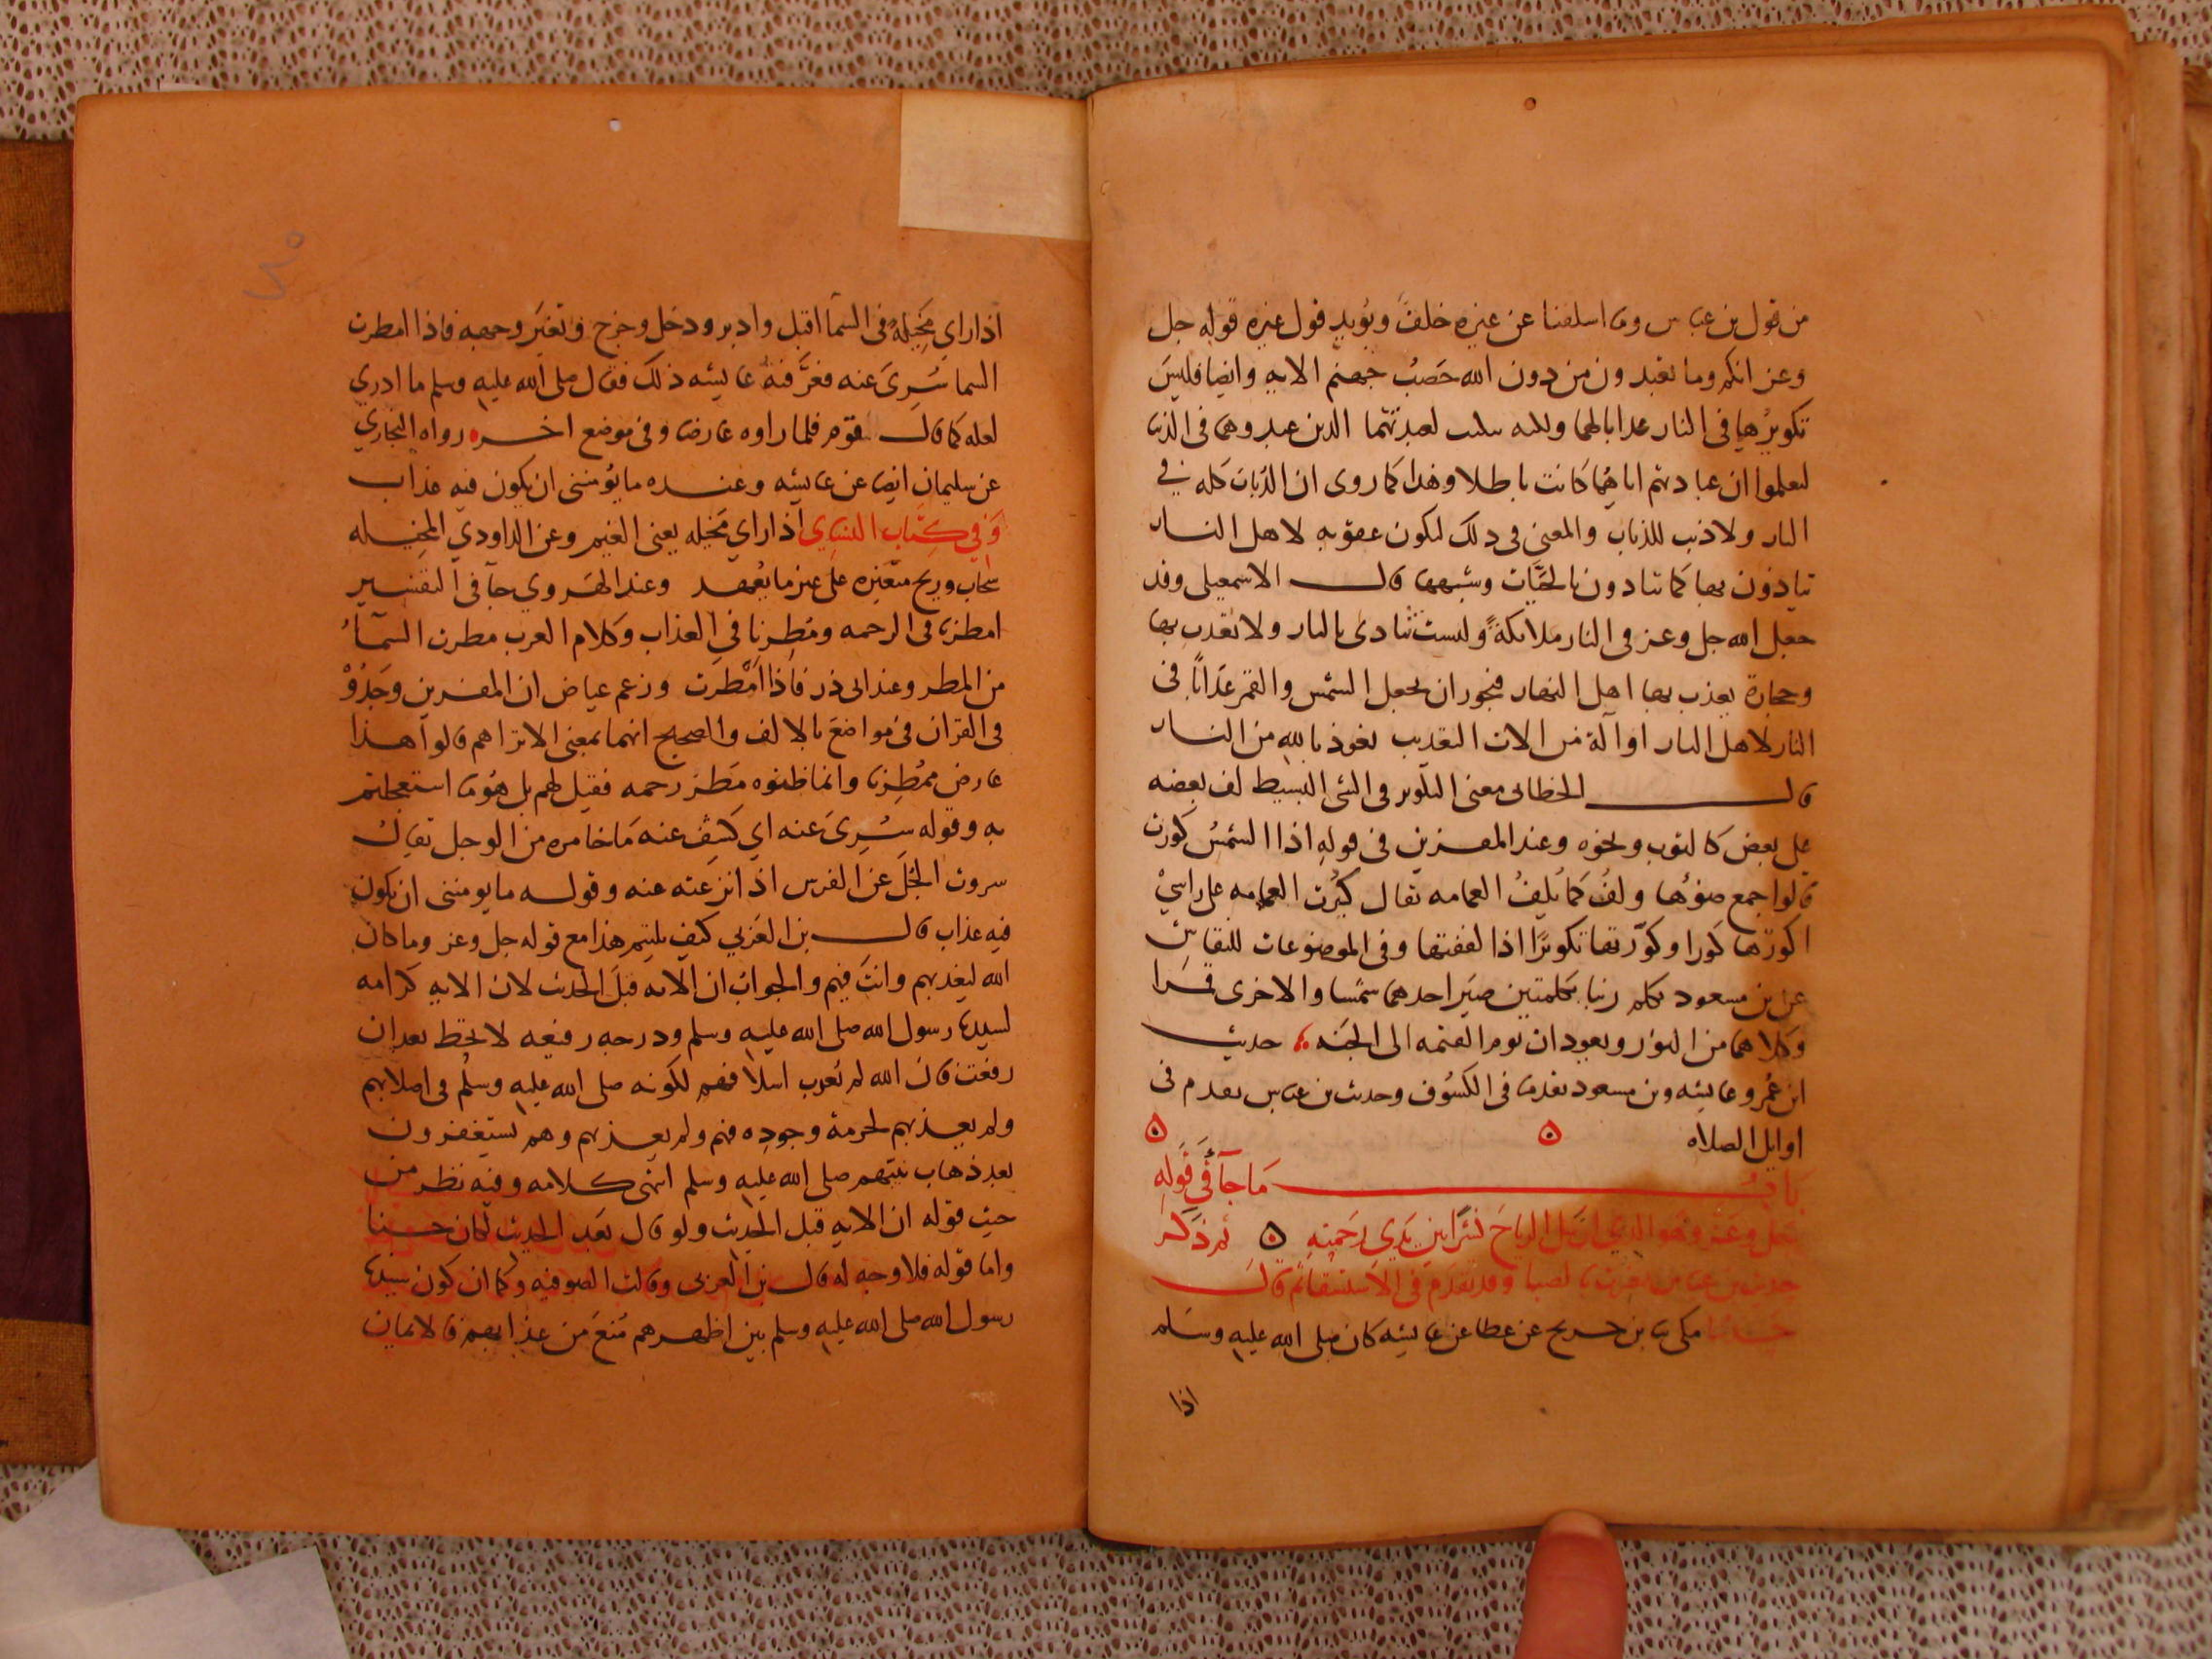 من قول بن عباس وما اسلفنا عن غيره خلفه ويويد قول غيره قوله جل
وعز انكم وما تعبدون من دون الله حصب جهنم الايه وايضا فليس
تكويرهما في النار عدابا لهما ولكنه تبكيت لعبدتهما الدين عبدوهما فى الدنيا
ليعلموا ان عبادتهم اياهما كانت باطلا وهدا كما روى ان الذباب كله في
النار ولا ذنب للذباب والمعنى فى دلك ليكون عقوبه لاهل النار
يتاذون بها كما يتادون بالحيات وشبهها قال الاسمعيلى وقد
جعل الله جل وعز فى النار ملائكة وليست تتادى بالنار ولا تعدب بها
وحجارة يعذب بها اهل النار فيجوز ان يجعل الشمس والقمر عدابا فى
النار لاهل النار او آلة من الات التعديب نعوذ بالله من النار
قال الخطابى معنى التكوير فى الشى البسيط لف بعضه
على بعض كالثوب ونحوه وعند المفسرين فى قوله اذا الشمس كورت
قالوا جمع ضوها ولف كما تلف العمامه يقال كورت العمامه على راسي
اكورها كورا وكورتها تكويرا اذا لففتها وفى الموضوعات للنقاش
عن بن مسعود تكلم ربنا بكلمتين صير احدهما شمسا والاخرى قمرا
وكلاهما من النور ويعودان يوم القيمه الى الجنه حديث
ابن عمرو عايشه وبن مسعود تقدما فى الكسوف وحديث بن عباس تقدم فى
اوايل الصلاه ٥ ٥
باب ما جآ في قوله
جل وعز وهو الذي ارسل الرياح نشرا بين يدي رحمته ٥ ثم ذكر
حديث بن عباس نصرت بالصبا وقد تقدم فى الاستسقا ثم قال
حدثنا مكى نا بن جريج عن عطا عن عايشه كان صلى الله عليه وسلم
اذا
اذا راي مخيلة فى السمآ اقبل وادبر ودخل وخرج وتغير وجهه فاذا امطرت
السما سري عنه فعرفته عايشه ذلك فقال صلى الله عليه وسلم ما ادري
لعله كما قال قوم فلما راوه عارضا وفى موضع اخر رواه البخاري
عن سليمان ايضا عن عايشه وعنده ما يومننى ان يكون فيه عذاب
وفي كتاب النساي اذا راي مخيله يعنى الغيم وعن الداودي المخيله
سحاب وريح متغيره على غير ما يعهد وعند الهروي جآ فى التفسير
امطرنا فى الرحمه ومطرنا في العذاب وكلام العرب مطرت السمآ
من المطر وعند ابى ذر فاذا امطرت وزعم عياض ان المفسرين وجدوا
فى القران فى مواضع بالالف والصحيح انهما بمعنى الا تراهم قالوا هذا
عارض ممطرنا وانما ظنوه مطر رحمه فقيل لهم بل هو ما استعجلتم
به وقوله سرى عنه اي كشف عنه ما خامره من الوجل يقال
سروت الجل عن الفرس اذ انزعته عنه وقوله ما يومننى ان يكون
فيه عذاب قال بن العربي كيف يلتيم هذا مع قوله جل وعز وما كان
الله ليعذبهم وانت فيهم والجواب ان الايه قبل الحديث لان الايه كرامه
لسيدنا رسول الله صلى الله عليه وسلم ودرجه رفيعه لا تحط بعد ان
رفعت قال الله لم يعدب اسلافهم لكونه صلى الله عليه وسلم فى اصلابهم
ولم يعذبهم لحرمة وجوده فيهم ولم يعذبهم وهم يستغفرون
بعد ذهاب نبيهم صلى الله عليه وسلم انتهى كلامه وفيه نظر من
حيث قوله ان الايه قبل الحديث ولو قال بعد الحديث لكان حسنا
واما قوله فلا وجه له قال بن العربى وقالت الصوفيه وكما ان كون سيدنا
رسول الله صلى الله عليه وسلم بين اظهرهم منع من عذابهم فالايمان